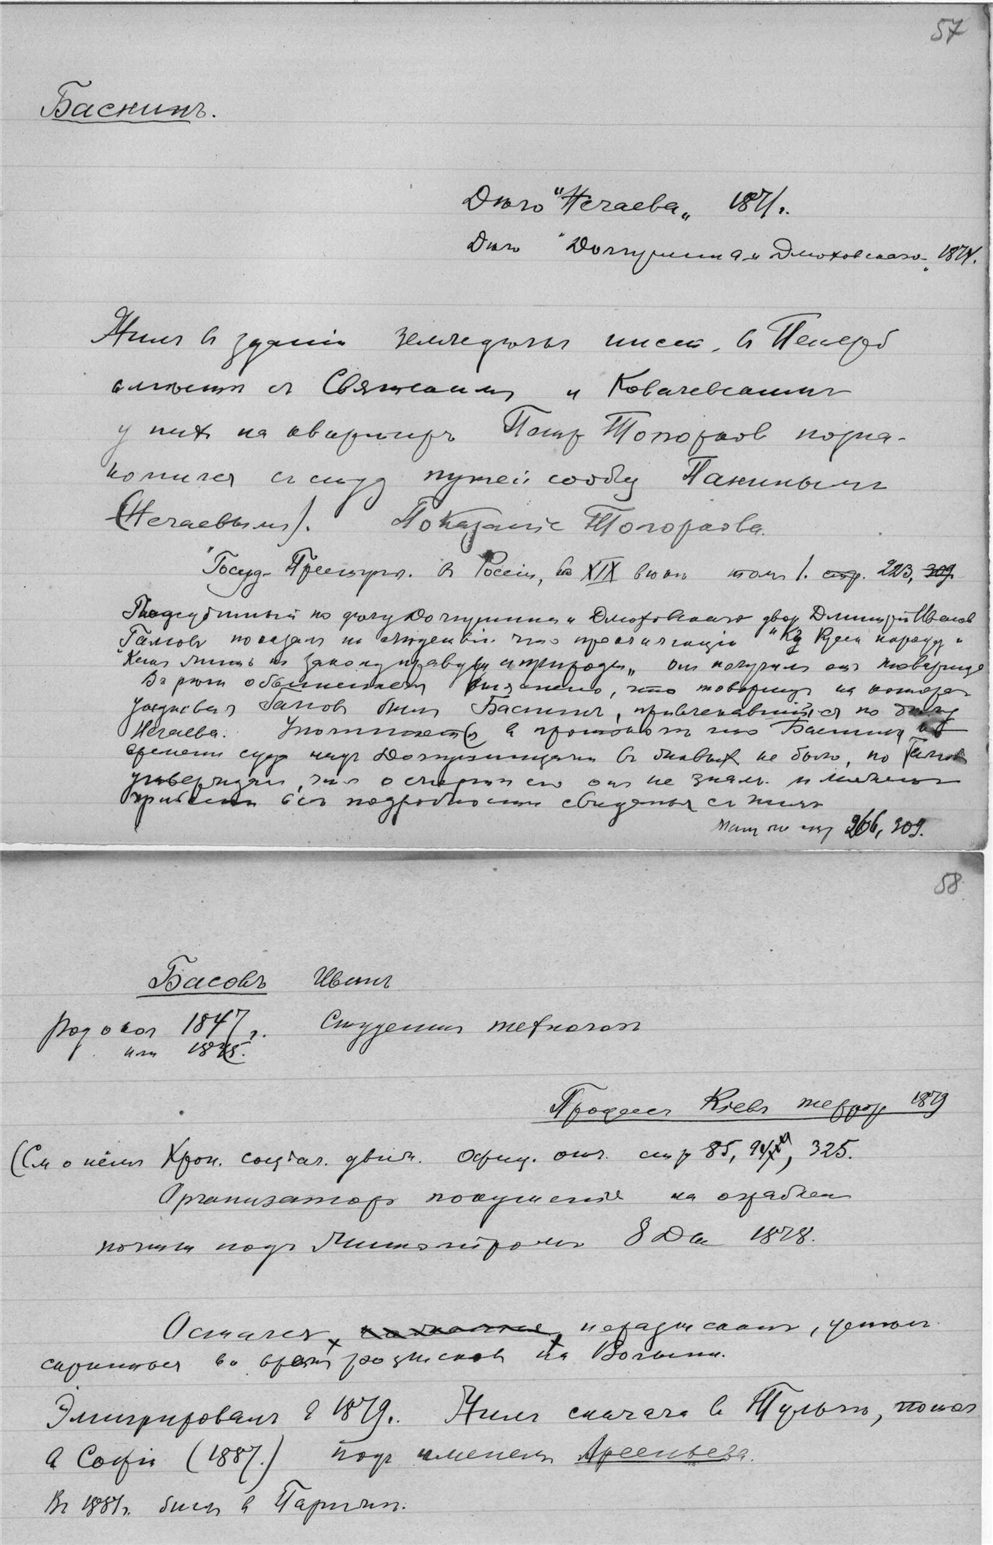 57
Баснинъ.
Дѣло "Нечаева" 1871.
Дѣло "Долгушина и Дмоховскаго" 1874.
Жилъ в здании земледѣльч инст. в Петерб
вмѣстѣ съ Святскимъ и Ковалевскимъ
у них на квартирѣ Петр Топорков позна-
комился со студ путей сообщ Паниным
(Нечаевымъ). Показаніе Топоркова.
"Госуд. Преступл. в Россіи, в XIX вѣкѣ томъ I. стр. 223, 309
Подсудимый по дѣлу Долгушина и Дмоховскаго двор Дмитрій Иванов
Гамовъ показал на слѣдствіи что прокламаціи "Къ русск народу"
"Какъ жить по закону правды и природы" он получил от товарища
что товарищ на котораго
указывал Гамов был Баснинъ, привлекавшійся по дѣлу
Нечаева. в что Баснина во
времени суда над Долгушинцами в живых не было, но Гамов
утверждал, что о смерти его он не знал. и
всѣ подробности свиданья с ним
Там же стр 266, 309.
58
Басовъ Иванъ
род около 1847 г. Студентъ технолог
или 1845.
Процесс Кіевъ террор 1879
(См о нёмъ Хрон. соціал. движ. Офиц. отч. стр 85, 325.
Организаторъ покушенія на ограблен
почты подъ 8 Дек 1878.
Остался неразыскант, успѣлъ
скрыться во время розысков на Волыни.
Эмигрировалъ в 1879. Жилъ сначала в Тульчѣ, потом
в Софіи (1887.) подъ именемъ Арсеньева.
Въ 1881г. былъ в Парижѣ.